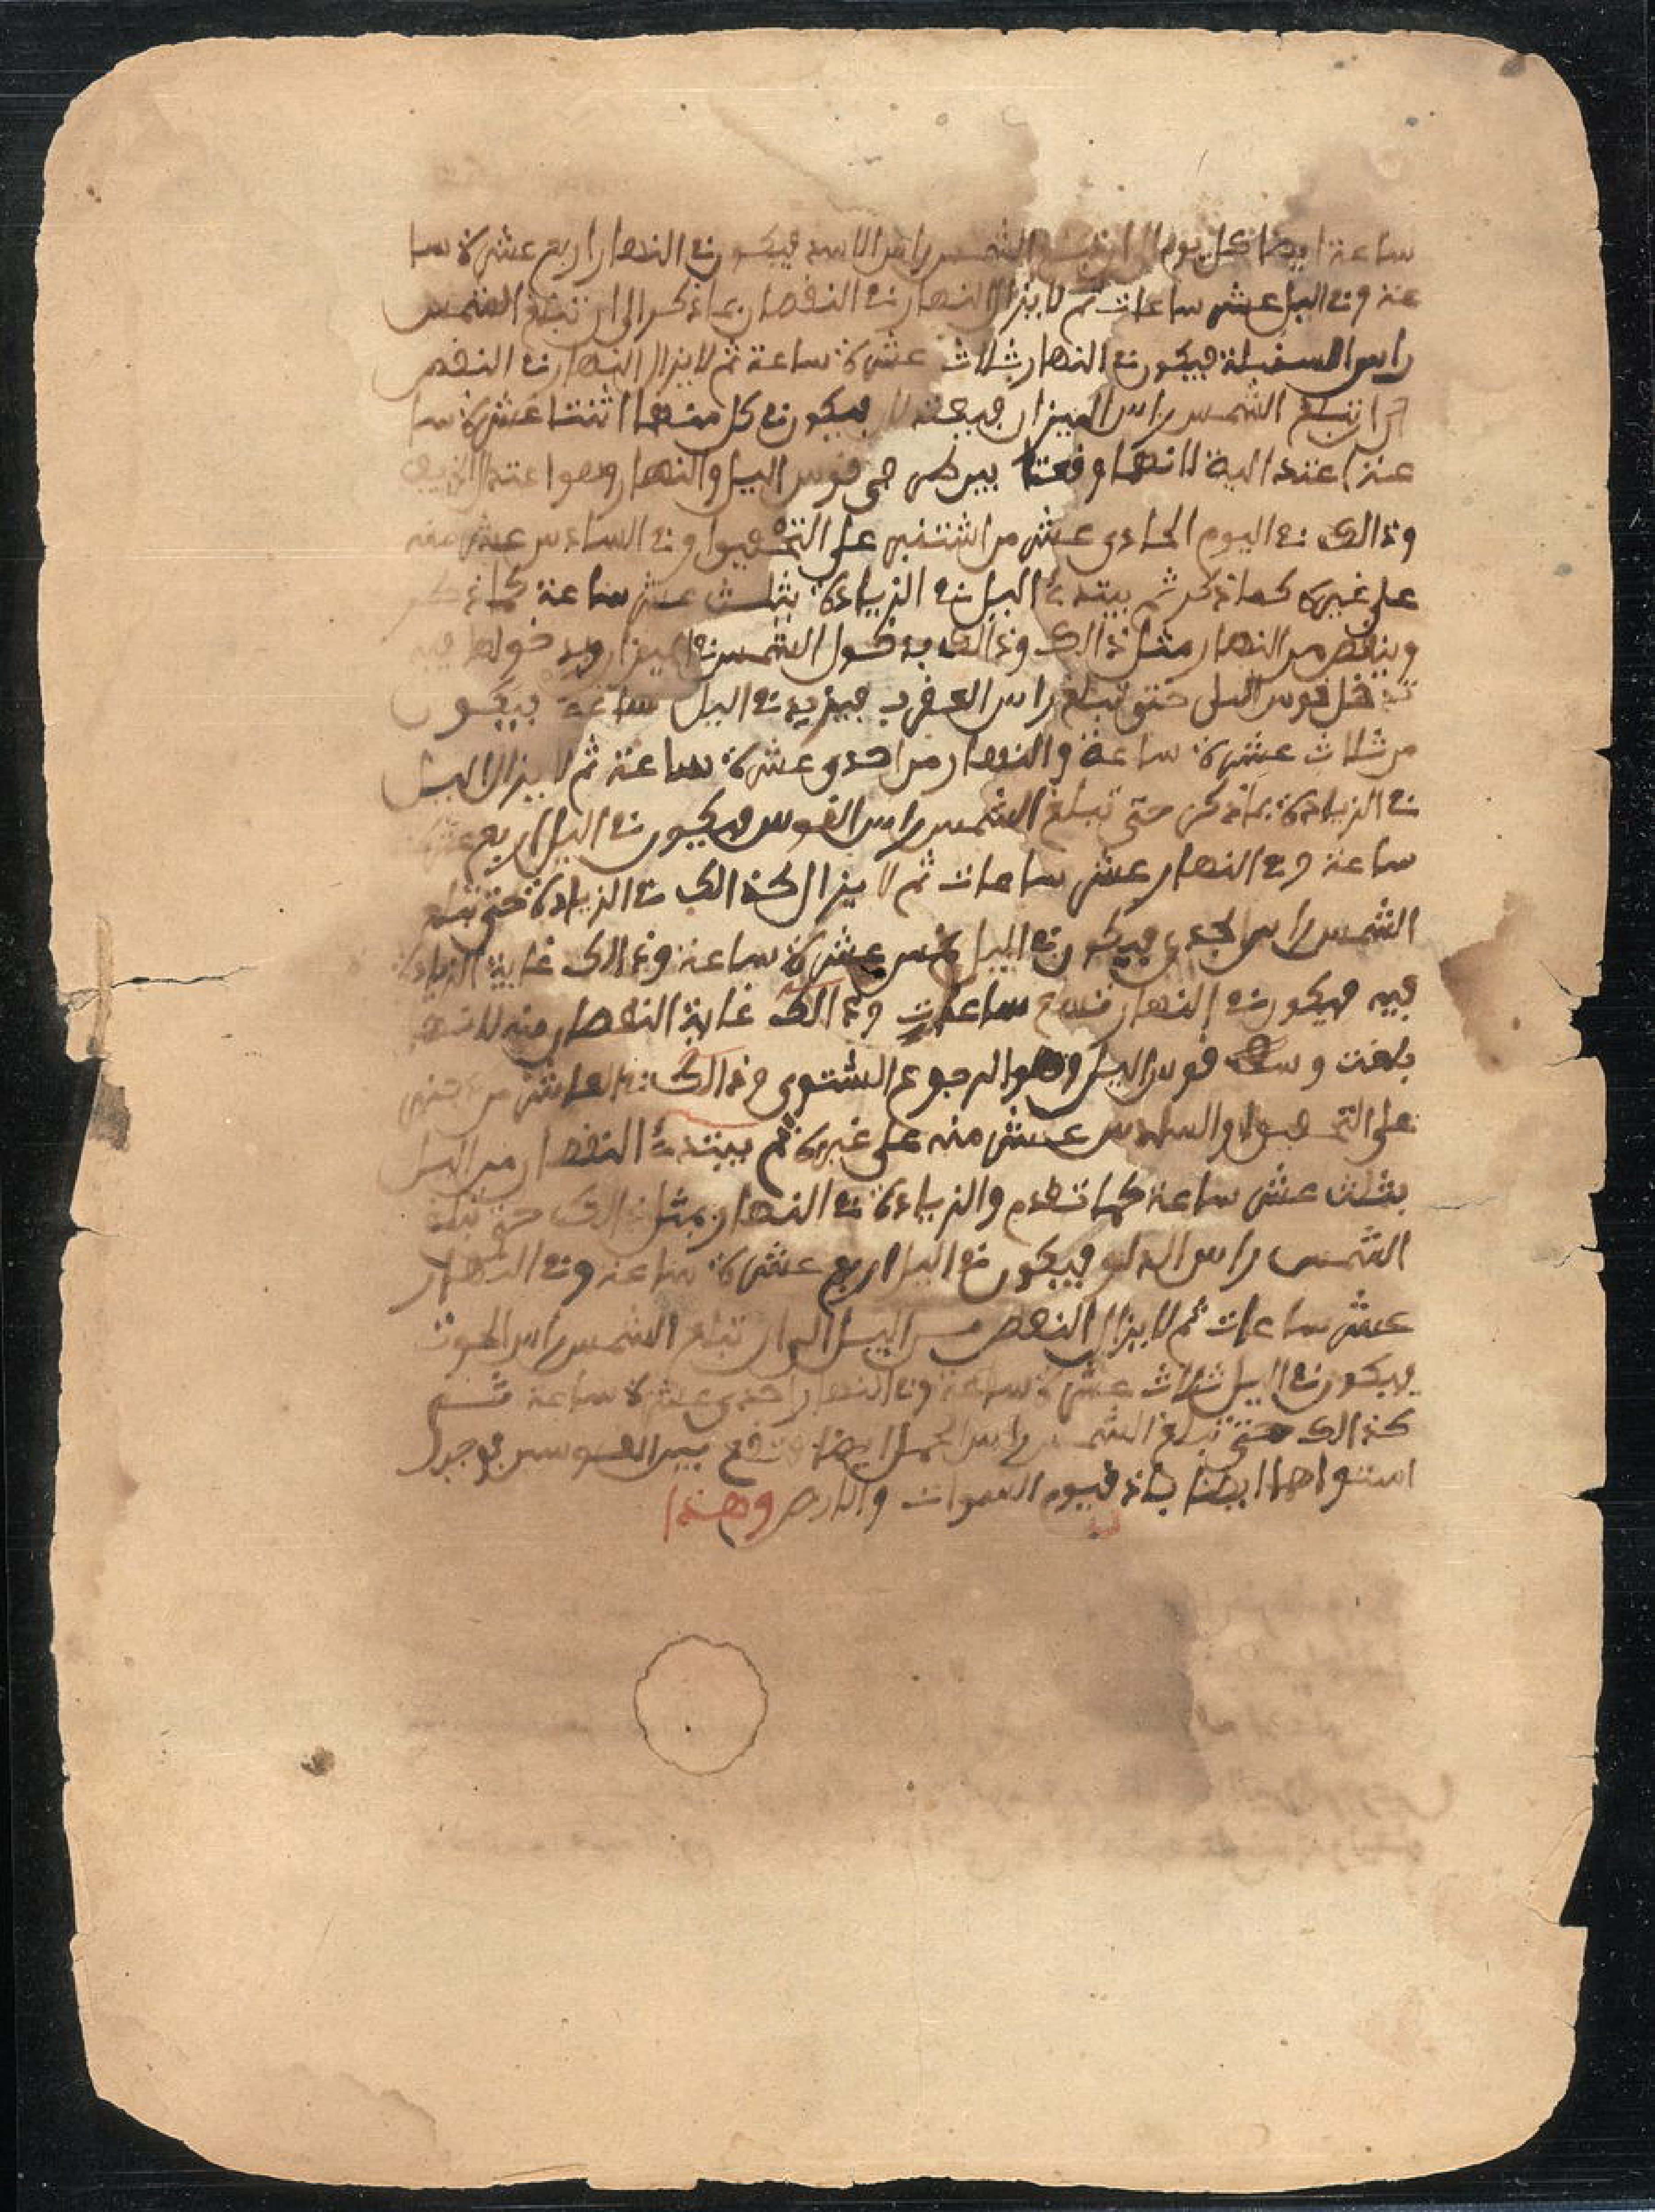 ساعة ايضا كل يوم الى ان تبلغ الشمس راس الاسد فيكون في النهار اربع عشرة سا
عة وفي اليل عشر ساعات ثم لا يزال النهار في النقصان بما ذكر الى ان تبلغ الشمس
راس السنبلة فيكون في النهار ثلاث عشرة ساعة ثم لا يزال النهار في النقص
الى ان تبلغ الشمس راس الميزان فيعتدلا فيكون في كل منهما اثنتا عشرة سا
عة اعتدالية لانها وقعت بين طرفي قوس اليل والنهار وهو اعتدال الخريف
وذالك في اليوم الحادي عشر من اشتنبر على التحقيق وفي السادس عشر منه
على غيره كما ذكر ثم يبتدئ اليل في الزيادة بثلث عشر ساعة كما ذكر
وينقص من النهار مثل ذالك وذالك بدخول الشمس في الميزان وبدخولها فيه
تدخل قوس اليل حتى تبلغ راس العقرب فيزيد في اليل ساعة فيكون
من ثلاث عشرة ساعة والنهار من احدى عشرة ساعة ثم لا يزال اليل
في الزيادة بما ذكر حتى تبلغ الشمس راس القوس فيكون في اليل اربع عشرة
ساعة وفي النهار عشر ساعات ثم لا يزال كذالك في الزيادة حتى تبلغ
الشمس راس الجدي فيكون في اليل خمس عشرة ساعة وذالك غاية الزيادة
فيه فيكون في النهار تسع ساعات وذالك غاية النقصان منه لانها
بلغت وسط قوس اليل وهو الرجوع الشتوي وذالك في العاشر من دجنبر
على التحقيق والسادس عشر منه على غيره ثم يبتدئ النقصان من اليل
بثلث عشر ساعة كما تقدم والزيادة في النهار بمثل ذالك حتى تبلغ
الشمس راس الدلو فيكون في اليل اربع عشرة ساعة وفي النهار
عشر ساعات ثم لا يزال النقص من اليل الى ان تبلغ الشمس راس الحوت
فيكون في اليل ثلاث عشرة ساعة وفي النهار احدى عشرة ساعة ثم
كذالك حتى تبلغ الشمس راس الحمل ايضا فتقع بين القوسين فوجد
استواهما ايضا باذن قيوم السموات والارض وهذا